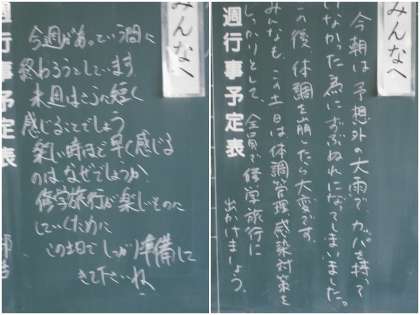 みんなへ
今週があっという間に
終わろうとしています
来週はさらに短く
感じることでしょう
楽しい時ほど早く感じる
のはなぜでしょうか
修学旅行が楽しいものに
していくために
この土日でしっかり準備して
きて下さいね
週行事予定表
みんなへ
今朝は予想外の大雨でカッパを持って
いなかった為にずぶぬれになってしまいました。
この後、体調を崩したら大変です。
みんなも、この土日は体調管理感染対策を
しっかりとして、全員で修学旅行に
出かけましょう。
週行事予定表